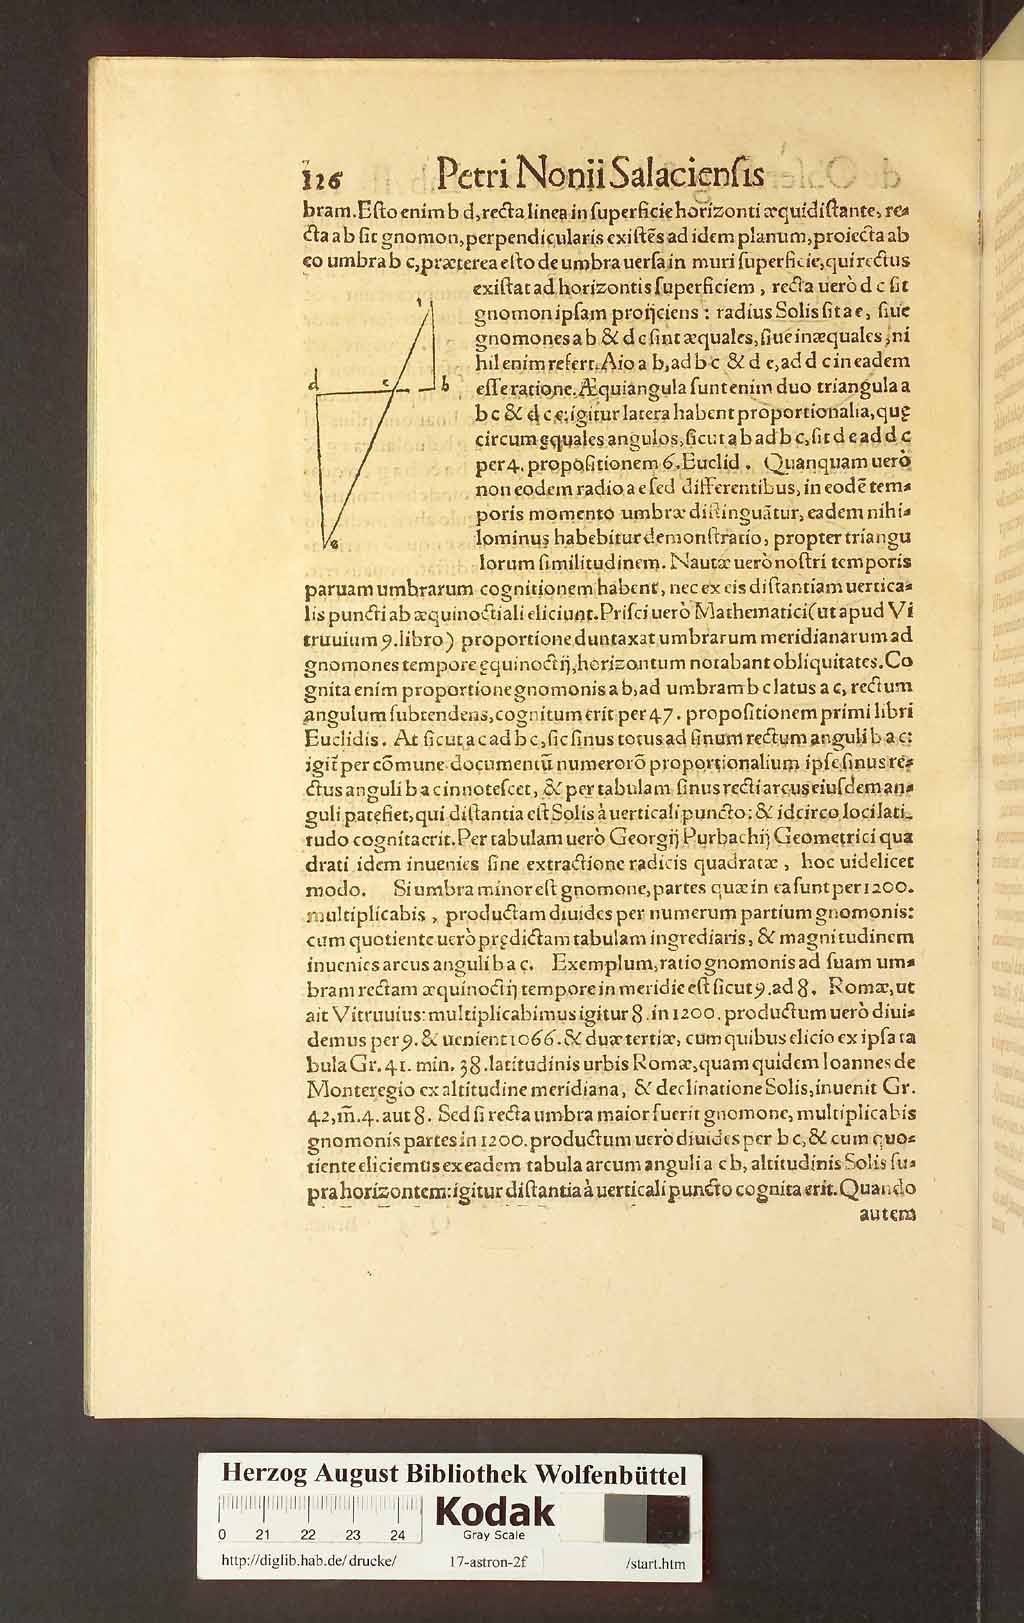 126 Petri Nonii Salaciensis
bram. Esto enim b d, recta linea in superficie horizonti æquidistante, re-
cta a b sit gnomon, perpendicularis existẽs ad idem planum, proiecta ab
eo umbra b c, præterea esto de umbra uersa in muri superficie, qui rectus
existat ad horizontis superficiem, recta uerò d c sit
gnomon ipsam proijciens: radius Solis sit a e, siue
gnomones a b & d c sint æquales, siue inæquales, ni
hil enim refert. Aio a b, ad b c & d e, ad d c in eadem
esse ratione. Æquiangula sunt enim duo triangula a
b c & d c e: igitur latera habent proportionalia, quę
circum ęquales angulos, sicut a b ad b c, sit d e ad d c
per 4. propositionem 6. Euclid. Quanquam uerò
non eodem radio a e sed differentibus, in eodẽ tem-
poris momento umbræ distinguãtur, eadem nihi-
lominus habebitur demonstratio, propter triangu
lorum similitudinem. Nautæ uerò nostri temporis
paruam umbrarum cognitionem habent, nec ex eis distantiam uertica-
lis puncti ab æquinoctiali eliciunt. Prisci uerò Mathematici (ut apud Vi
truuium 9. libro) proportione duntaxat umbrarum meridianarum ad
gnomones tempore ęquinoctij, horizontum notabant obliquitates. Co
gnita enim proportione gnomonis a b, ad umbram b c latus a c, rectum
angulum subtendens, cognitum erit per 47. propositionem primi libri
Euclidis. At sicut a c ad b c, sic sinus totus ad sinum rectum anguli b a c:
igit̃ per cõmune documentũ numerorõ proportionalium ipse sinus re-
ctus anguli b a c innotescet, & per tabulam sinus recti arcus eiusdem an-
guli patefiet, qui distantia est Solis à uerticali puncto: & idcirco loci lati-
tudo cognita erit. Per tabulam uerò Georgij Purbachij Geometrici qua
drati idem inuenies sine extractione radicis quadratæ, hoc uidelicet
modo. Si umbra minor est gnomone, partes quæ in ea sunt per 1200.
multiplicabis, productam diuides per numerum partium gnomonis:
cum quotiente uerò prędictam tabulam ingrediaris, & magnitudinem
inuenies arcus anguli b a c. Exemplum, ratio gnomonis ad suam um-
bram rectam æquinoctij tempore in meridie est sicut 9. ad 8. Romæ, ut
ait Vitruuius: multiplicabimus igitur 8. in 1200. productum uerò diui-
demus per 9. & uenient 1066. & duæ tertiæ, cum quibus elicio ex ipsa ta
bula Gr. 41. min. 38. latitudinis urbis Romæ, quam quidem Ioannes de
Monteregio ex altitudine meridiana, & declinatione Solis, inuenit Gr.
42, m̃. 4. aut 8. Sed si recta umbra maior fuerit gnomone, multiplicabis
gnomonis partes in 1200. productum uerò diuides per b c, & cum quo-
tiente eliciemus ex eadem tabula arcum anguli a c b, altitudinis Solis su-
pra horizontem: igitur distantia à uerticali puncto cognita erit. Quando
autem
d c b
e
Herzog August Bibliothek Wolfenbüttel
0 21 22 23 24
Kodak
Gray Scale
http://diglib.hab.de/drucke/ 17-astron-2f /start.htm